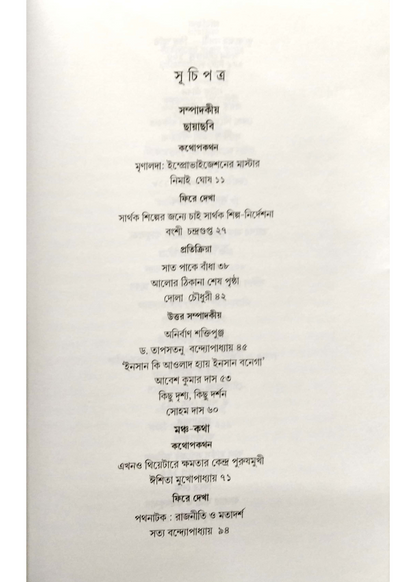 সূ চি প ত্র
সম্পাদকীয়
ছায়াছবি
কথোপকথন
মৃণালদা: ইম্প্রোভাইজেশনের মাস্টার
নিমাই ঘোষ ১১
ফিরে দেখা
সার্থক শিল্পের জন্যে চাই সার্থক শিল্প-নির্দেশনা
বংশী চন্দ্রগুপ্ত ২৭
প্রতিক্রিয়া
সাত পাকে বাঁধা ৩৮
আলোর ঠিকানা শেষ পৃষ্ঠা
দোলা চৌধুরী ৪২
উত্তর সম্পাদকীয়
অনির্বাণ শক্তিপুঞ্জ
ড. তাপসতনু বন্দ্যোপাধ্যায় ৪৫
‘ইনসান কি আওলাদ হ্যায় ইনসান বনেগা’
আবেশ কুমার দাস ৫৩
কিছু দৃশ্য, কিছু দর্শন
সোহম দাস ৬০
মঞ্চ-কথা
কথোপকথন
এখনও থিয়েটারে ক্ষমতার কেন্দ্র পুরুষমুখী
ঈশিতা মুখোপাধ্যায় ৭১
ফিরে দেখা
পথনাটক : রাজনীতি ও মতাদর্শ
সত্য বন্দ্যোপাধ্যায় ৯৪